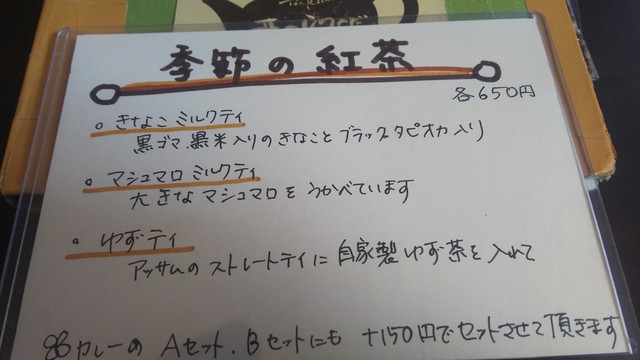 季節の紅茶
各650円
。きなこミルクティ
黒ゴマ、黒米入りのきなことブラックタピオカ入り
。マシュマロミルクティ
大きなマシュマロをうかべています
。ゆずティ
アッサムのストレートティに自家製ゆず茶を入れて
カレーのAセット、Bセットにも +150円でセットさせて頂きます